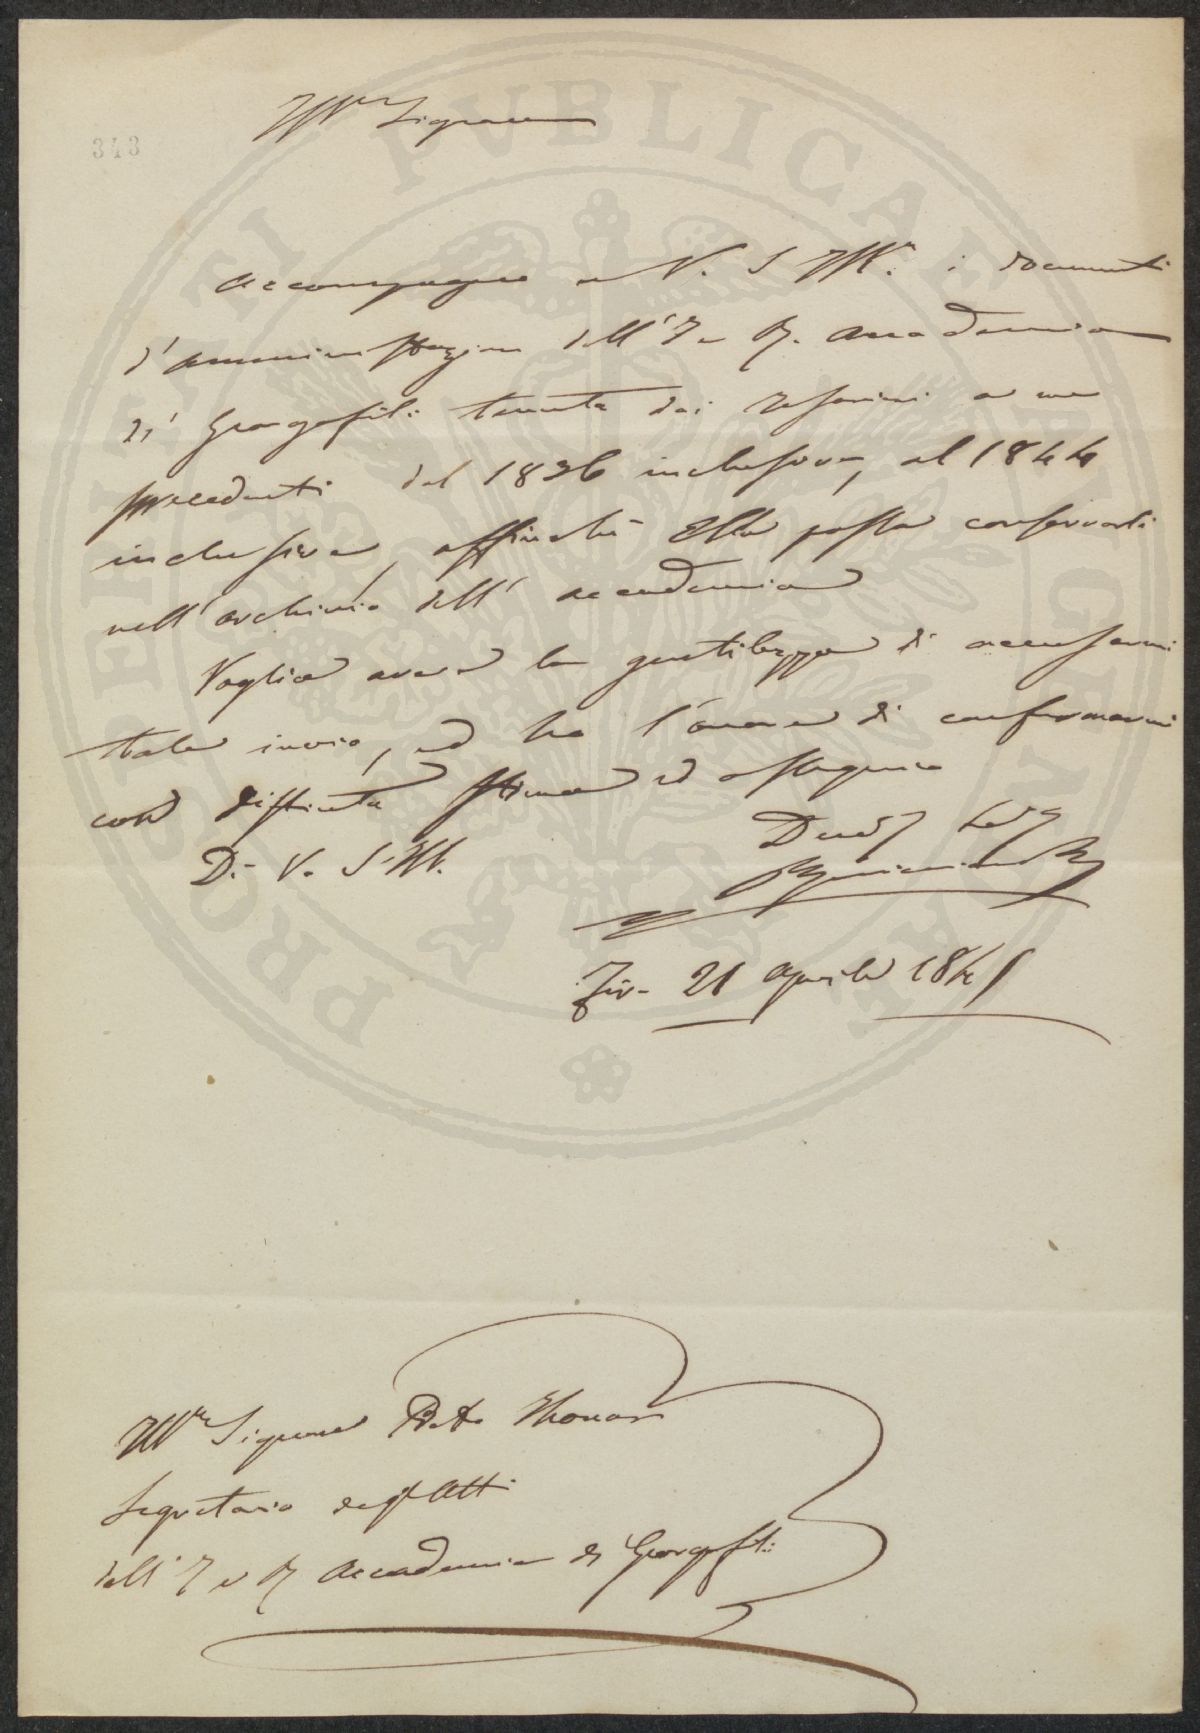 343
Ill.mo Signore
Accompagno a V. S. Ill.ma i documenti
d'amministrazione dell'I. e R. Accademia
di Georgofili tenuta dai a me
precedenti dal 1836 inclusive, al 1844
inclusive, affinché Ella possa conservarli
nell'archivio dell'Accademia
Voglia avere la gentilezza di accusarmi
tale invio, ed ho l'onore di confermarmi
con distinta stima ed ossequio
D. V. S. Ill.
Fir. 21 Aprile 1845
Ill.mo Signore Thouar
Segretario degl'Atti
dell'I. e R. Accademia di Georgofili
PROSPERITATI PVBLICAE AVGENDAE